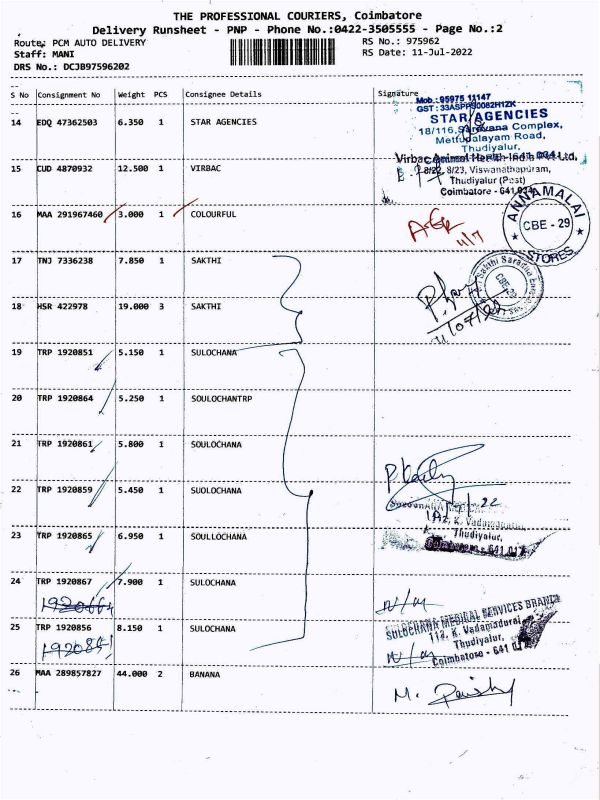 THE PROFESSIONAL COURIERS, Coimbatore
Delivery Runsheet - PNP - Phone No.:0422-3505555 - Page No.:2
Route: PCM AUTO DELIVERY RS No.: 975962
Staff: MANI RS Date: 11-Jul-2022
DRS No.: DCJB97596202
S No Consignment No Weight PCS Consignee Details Signature
Mob.: 95975 11147
GST: 33ASPPS0082H1ZK
14 EDQ 47362503 6.350 1 STAR AGENCIES STAR AGENCIES
18/116, Saravana Complex,
Mettupalayam Road,
Thudiyalur,
Virbac Animal Health India Pvt. Ltd,
15 CUD 4870932 12.500 1 VIRBAC 8/22, 8/23, Viswanathapuram,
Thudiyalur (Post)
Coimbatore - 641 034
16 MAA 291967460 3.000 1 COLOURFUL
11/7
ANNAMALAI STORES
CBE - 29
17 TNJ 7336238 7.850 1 SAKTHI
18 HSR 422978 19.000 3 SAKTHI
19 TRP 1920851 5.150 1 SULOCHANA
20 TRP 1920864 5.250 1 SOULOCHANTRP
21 TRP 1920861 5.800 1 SOULOCHANA
22 TRP 1920859 5.450 1 SUOLOCHANA
K. Vadamadurai
23 TRP 1920865 6.950 1 SOULLOCHANA Thudiyalur,
Coimbatore - 641 017
24 TRP 1920867 7.900 1 SULOCHANA
SULOCHANA MEDICAL SERVICES BRANCH
25 TRP 1920856 8.150 1 SULOCHANA 112, K. Vadamadurai
Thudiyalur,
Coimbatore - 641 017
26 MAA 289857827 44.000 2 BANANA M.